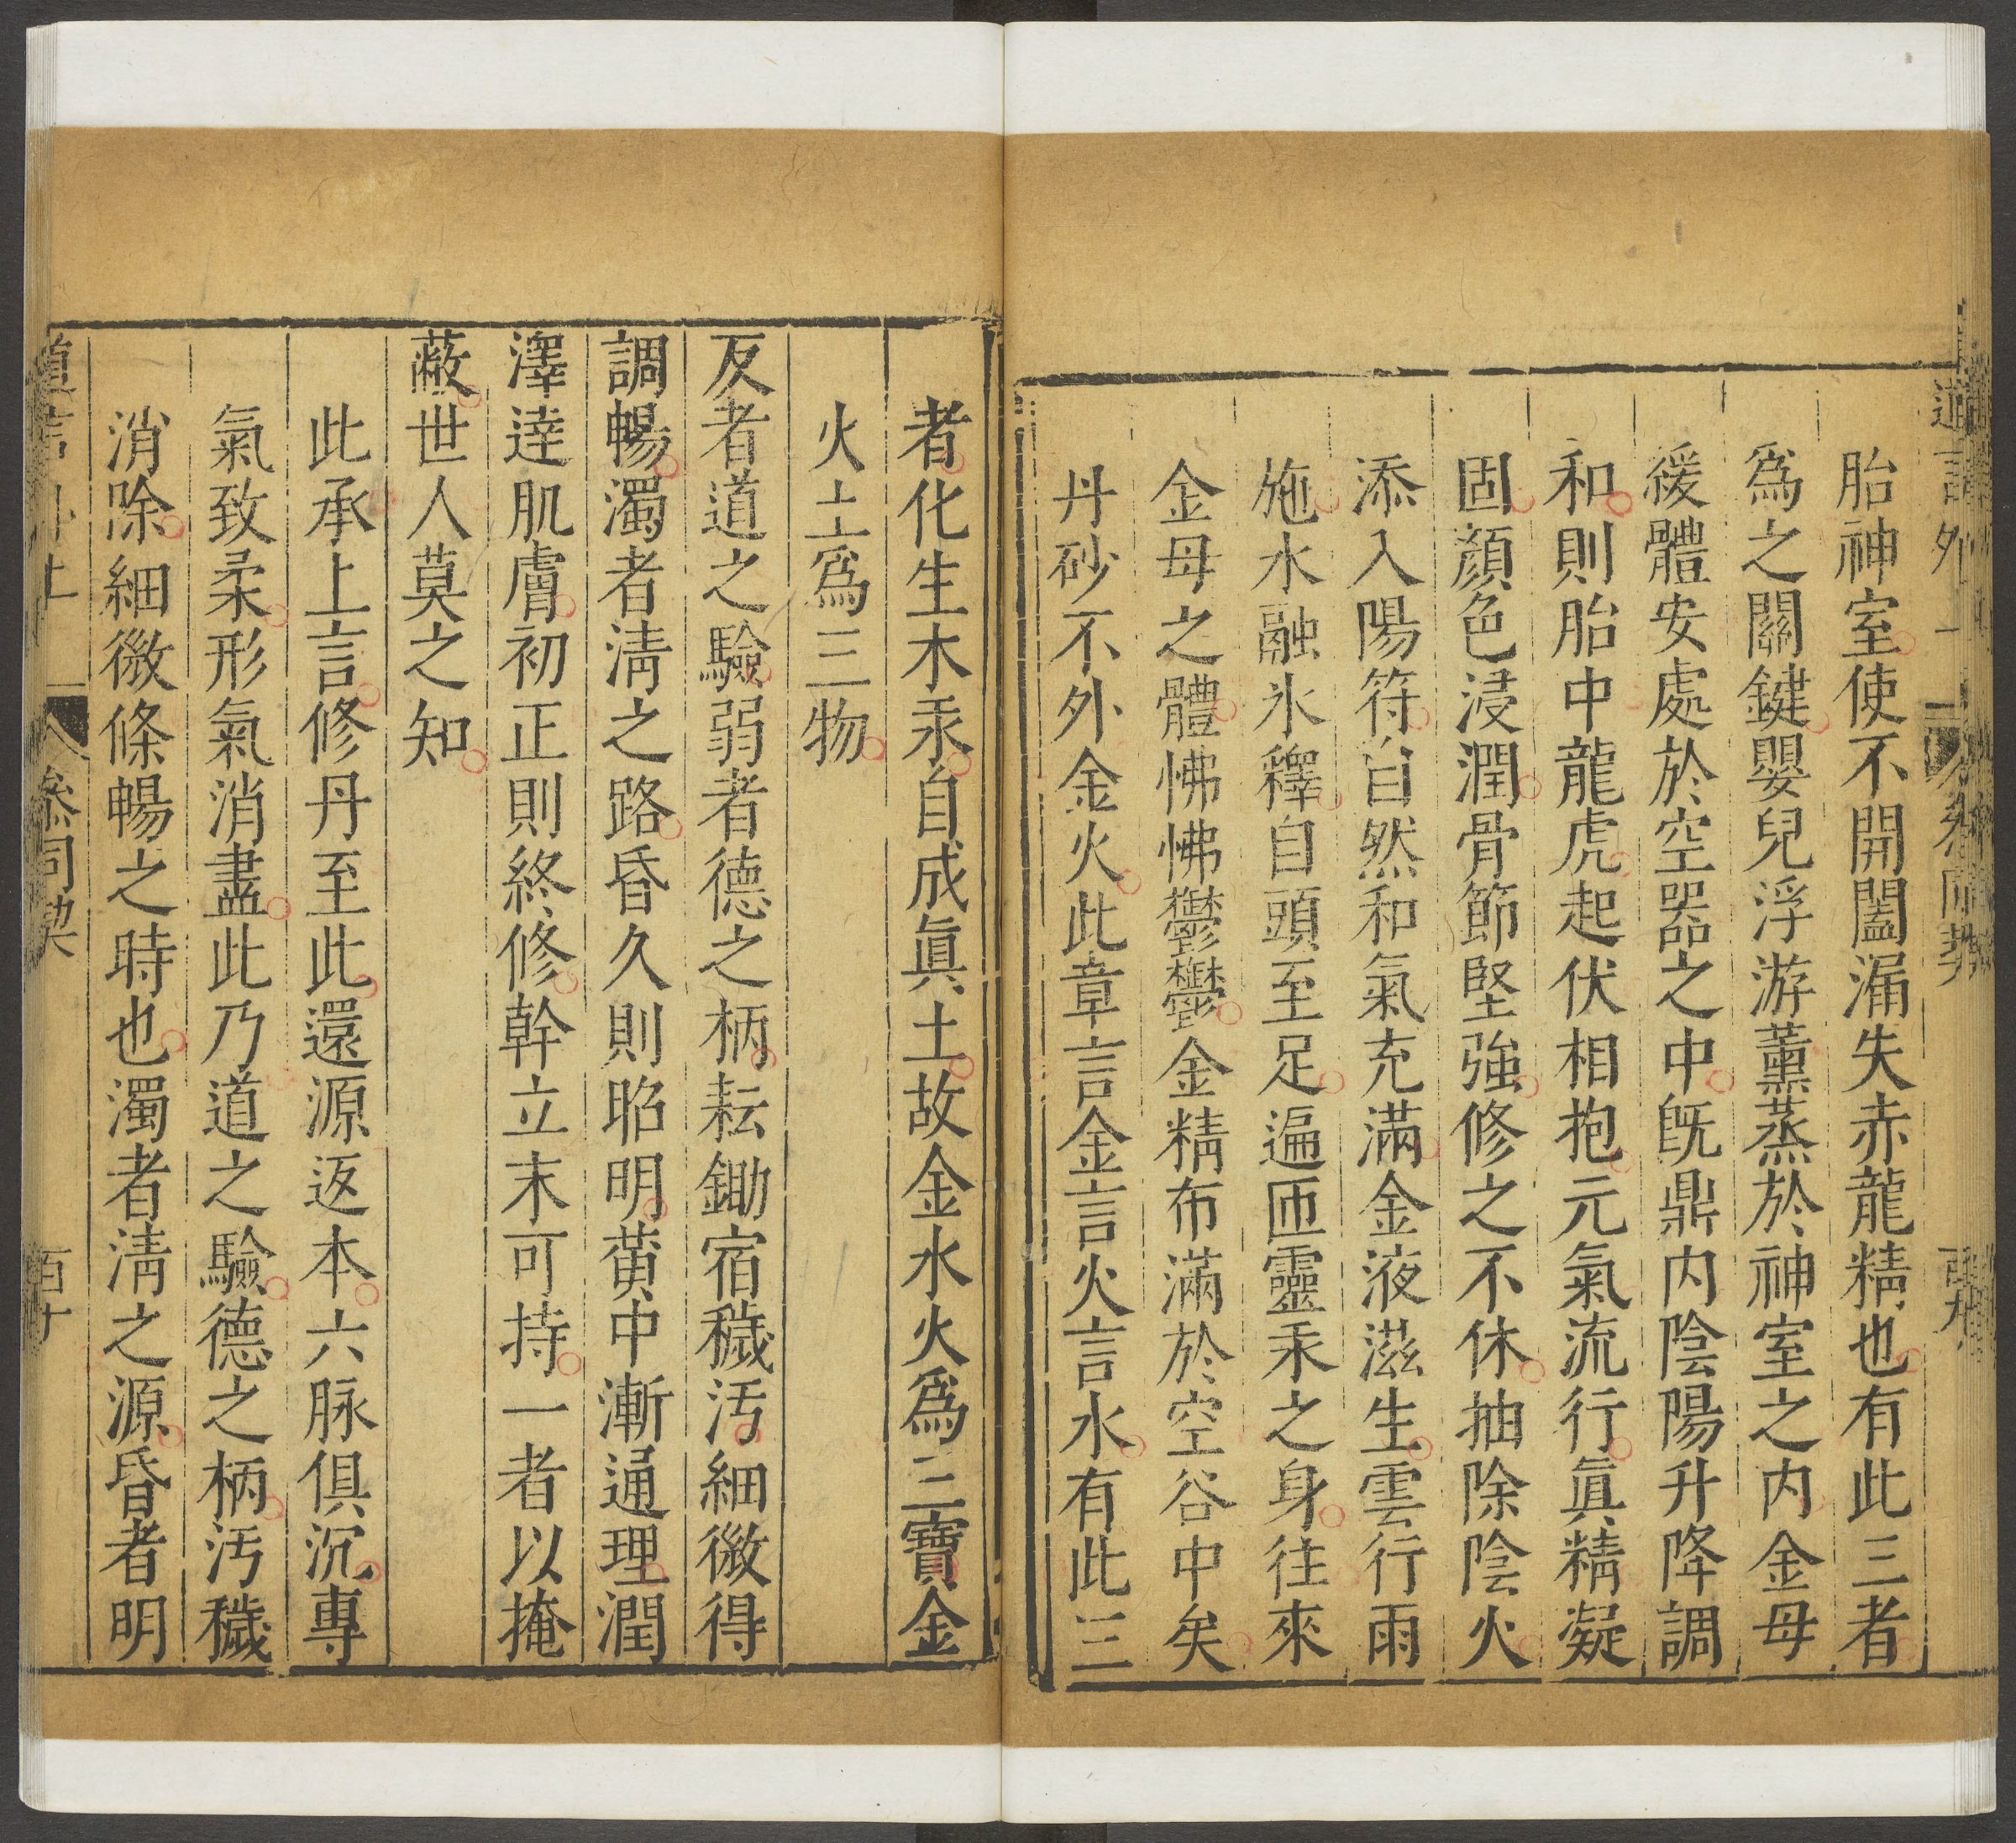 胎神室使不開闔漏失赤龍精也有此三者
爲之關鍵嬰兒浮游薰蒸於神室之内金母
緩體安處於空器之中旣鼎内陰陽升降調
和則胎中龍虎起伏相抱元氣流行眞精凝
固顔色浸潤骨節堅強修之不休抽除陰火
添入陽符自然和氣充滿金液滋生雲行雨
施水融氷釋自頭至足遍匝靈汞之身往來
金母之體怫怫鬱鬱金精布滿於空谷中矣
丹砂不外金火此章言金言火言水有此三
者化生木汞自成眞土故金水火爲三寶金
火土爲三物
反者道之驗弱者德之柄耘鋤宿穢汚細微得
調暢濁者淸之路昏久則昭明黄中漸通理潤
澤達肌膚初正則終修幹立末可持一者以掩
蔽世人莫之知
此承上言修丹至此還源返本六脉俱沉專
氣致柔形氣消盡此乃道之驗德之柄汚穢
消除細微條暢之時也濁者淸之源昏者明
參同契